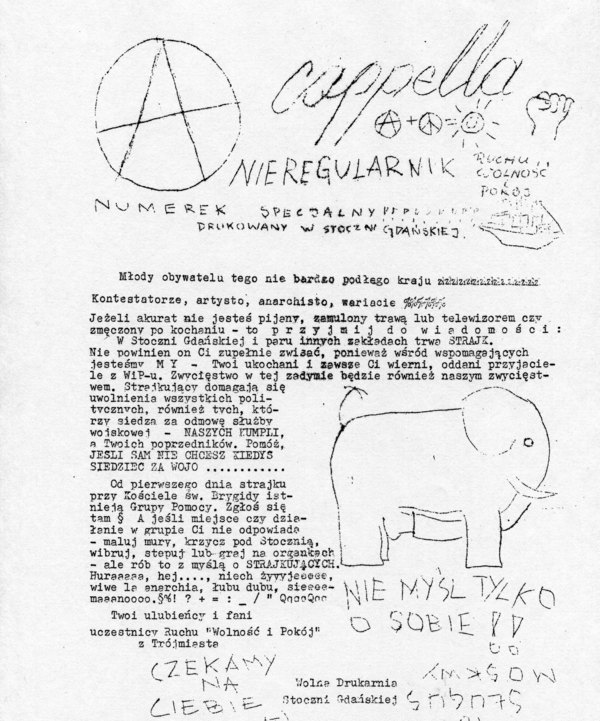 A cappella
A + = 
NIEREGULARNIK RUCHU
WOLNOŚĆ
I
POKÓJ
NUMEREK SPECJALNY
DRUKOWANY W STOCZNI GDAŃSKIEJ.
Młody obywatelu tego nie bardzo podłego kraju
Kontestatorze, artysto, anarchisto, wariacie
Jeżeli akurat nie jesteś pijany, zamulony trawą lub telewizorem czy
zmęczony po kochaniu - to p r z y j m i j d o w i a d o m o ś c i :
W Stoczni Gdańskiej i paru innych zakładach trwa STRAJK.
Nie powinien on Ci zupełnie zwisać, ponieważ wśród wspomagających
jesteśmy M Y - Twoi ukochani i zawsze Ci wierni, oddani przyjacie-
le z WiP-u. Zwycięstwo w tej zadymie będzie również naszym zwycięst-
wem. Strajkujący domagają się
uwolnienia wszystkich poli-
tycznych, również tych, któ-
rzy siedzą za odmowę służby
wojskowej - NASZYCH KUMPLI,
a Twoich poprzedników. Pomóż,
JESLI SAM NIE CHCESZ KIEDYS
SIEDZIEC ZA WOJO ............
Od pierwszego dnia strajku
przy Kościele św. Brygidy ist-
nieją Grupy Pomocy. Zgłoś się
tam § A jeśli miejsce czy dzia-
łanie w grupie Ci nie odpowiada
- maluj mury, krzycz pod Stocznią,
wibruj, stepuj lub graj na organkach
- ale rób to z myślą o STRAJKUJĄCYCH.
Huraaaaa, hej...., niech żyyyjeeeee,
wiwe la anarchia, łubu dubu, sieeee-
maaanoooo.§%! ? + = : _ / " QqooQoo
Twoi ulubieńcy i fani
uczestnicy Ruchu "Wolność i Pokój"
z Trójmiasta
NIE MYŚL TYLKO
O SOBIE !!
CZEKAMY
NA
CIEBIE
Wolna Drukarnia
Stoczni Gdańskiej